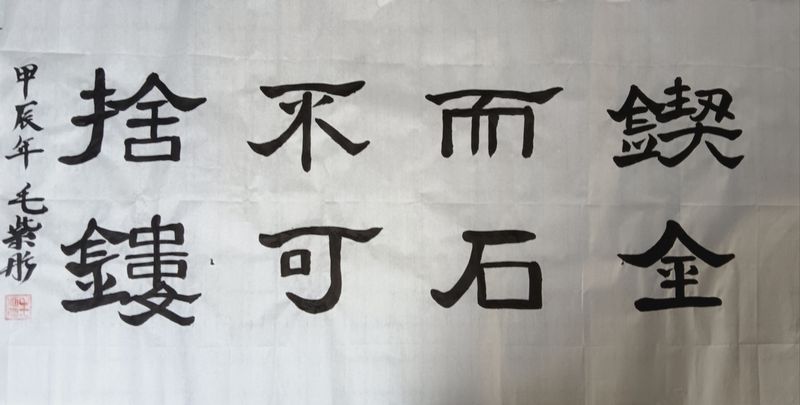 鍥而不捨
金石可鏤
甲辰年 毛紫彤